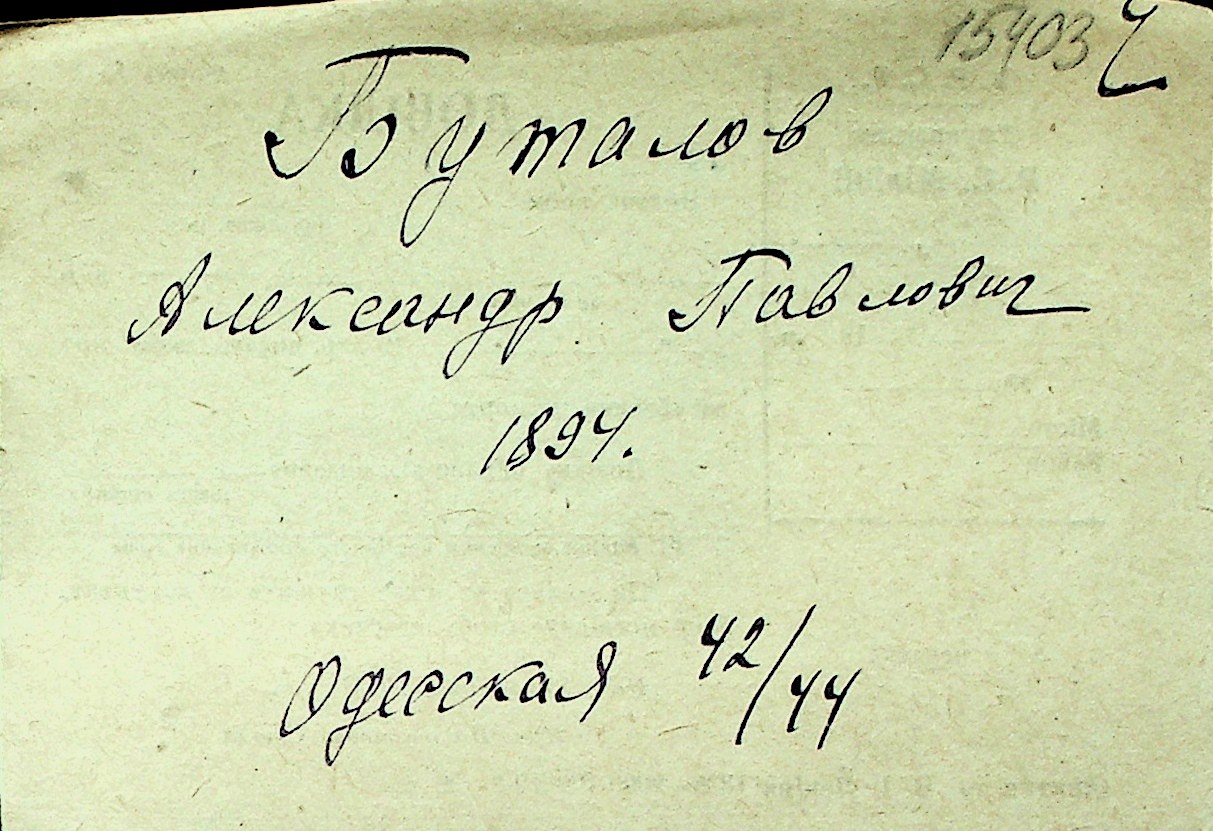 15403
Буталов
Александр Павлович
1894.
Одесская 42/44